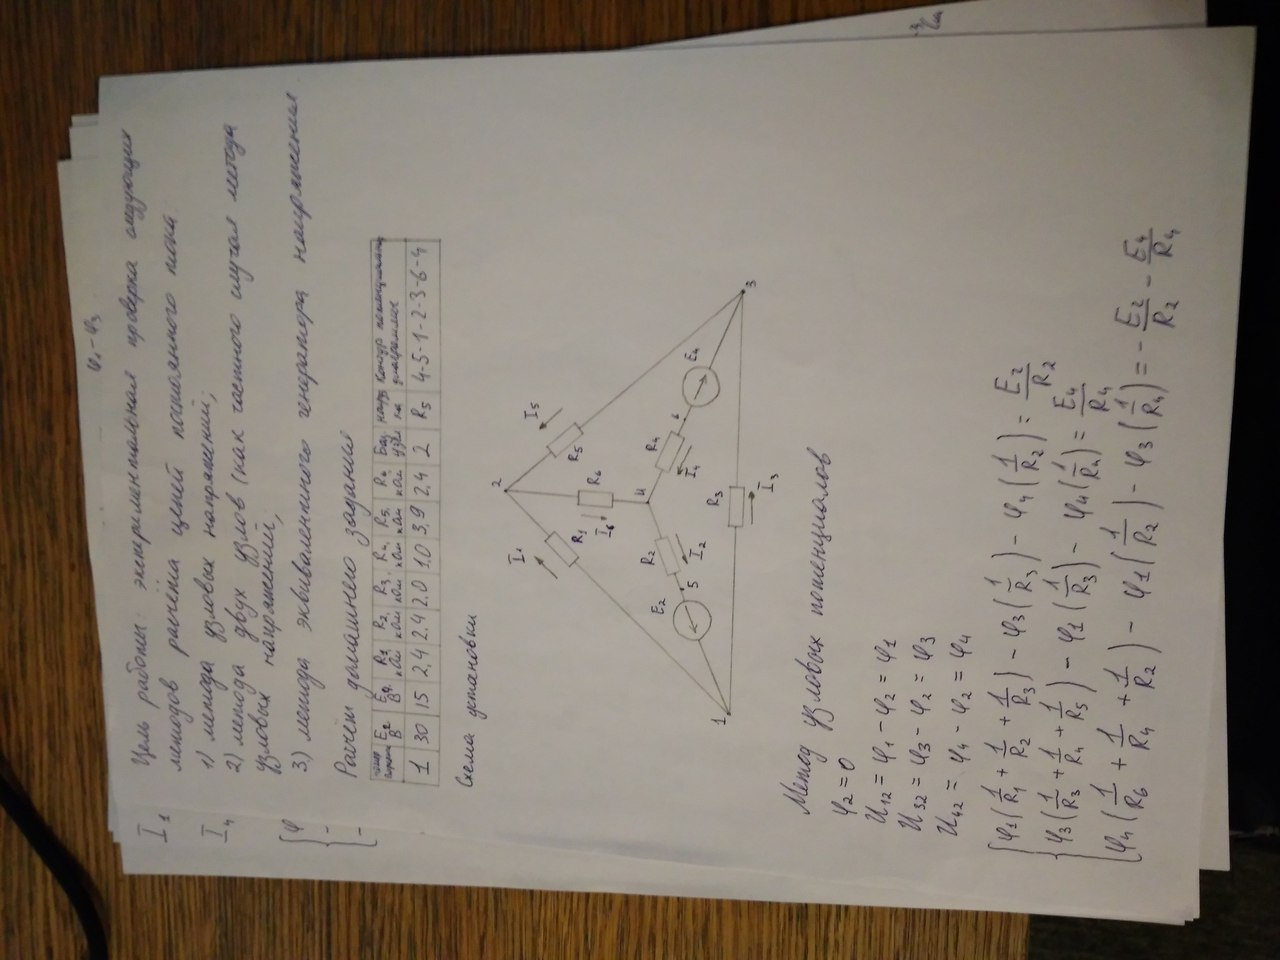 φ₁ - φ₃
I₁
Цель работы: экспериментальная проверка следующих
методов расчёта цепей постоянного тока:
I₄
1) метода узловых напряжений;
2) метода двух узлов (как частного случая метода
узловых напряжений;
φ
-
-
3) метода эквивалентного генератора напряжения
Расчёт домашнего задания
номер варианта E₂, В E₄, В R₁, кОм R₂, кОм R₃, кОм R₄, кОм R₅, кОм R₆, кОм Баз. узел нагрузка Контур потенциальн. диаграммы
1 30 15 2,4 2,4 2,0 1,0 3,9 2,4 2 R₅ 4-5-1-2-3-6-4
Схема установки
2
I₁ I₅
R₁ R₆ R₅
I₆
4
E₂ R₂ R₄
5 I₂ I₄ 6 E₄
1 R₃ 3
I₃
Метод узловых потенциалов
φ₂ = 0
U₁₂ = φ₁ - φ₂ = φ₁
U₃₂ = φ₃ - φ₂ = φ₃
U₄₂ = φ₄ - φ₂ = φ₄
φ₁(1/R₁ + 1/R₂ + 1/R₃) - φ₃(1/R₃) - φ₄(1/R₂) = E₂/R₂
φ₃(1/R₃ + 1/R₄ + 1/R₅) - φ₁(1/R₃) - φ₄(1/R₄) = E₄/R₄
φ₄(1/R₆ + 1/R₄ + 1/R₂) - φ₁(1/R₂) - φ₃(1/R₄) = - E₂/R₂ - E₄/R₄